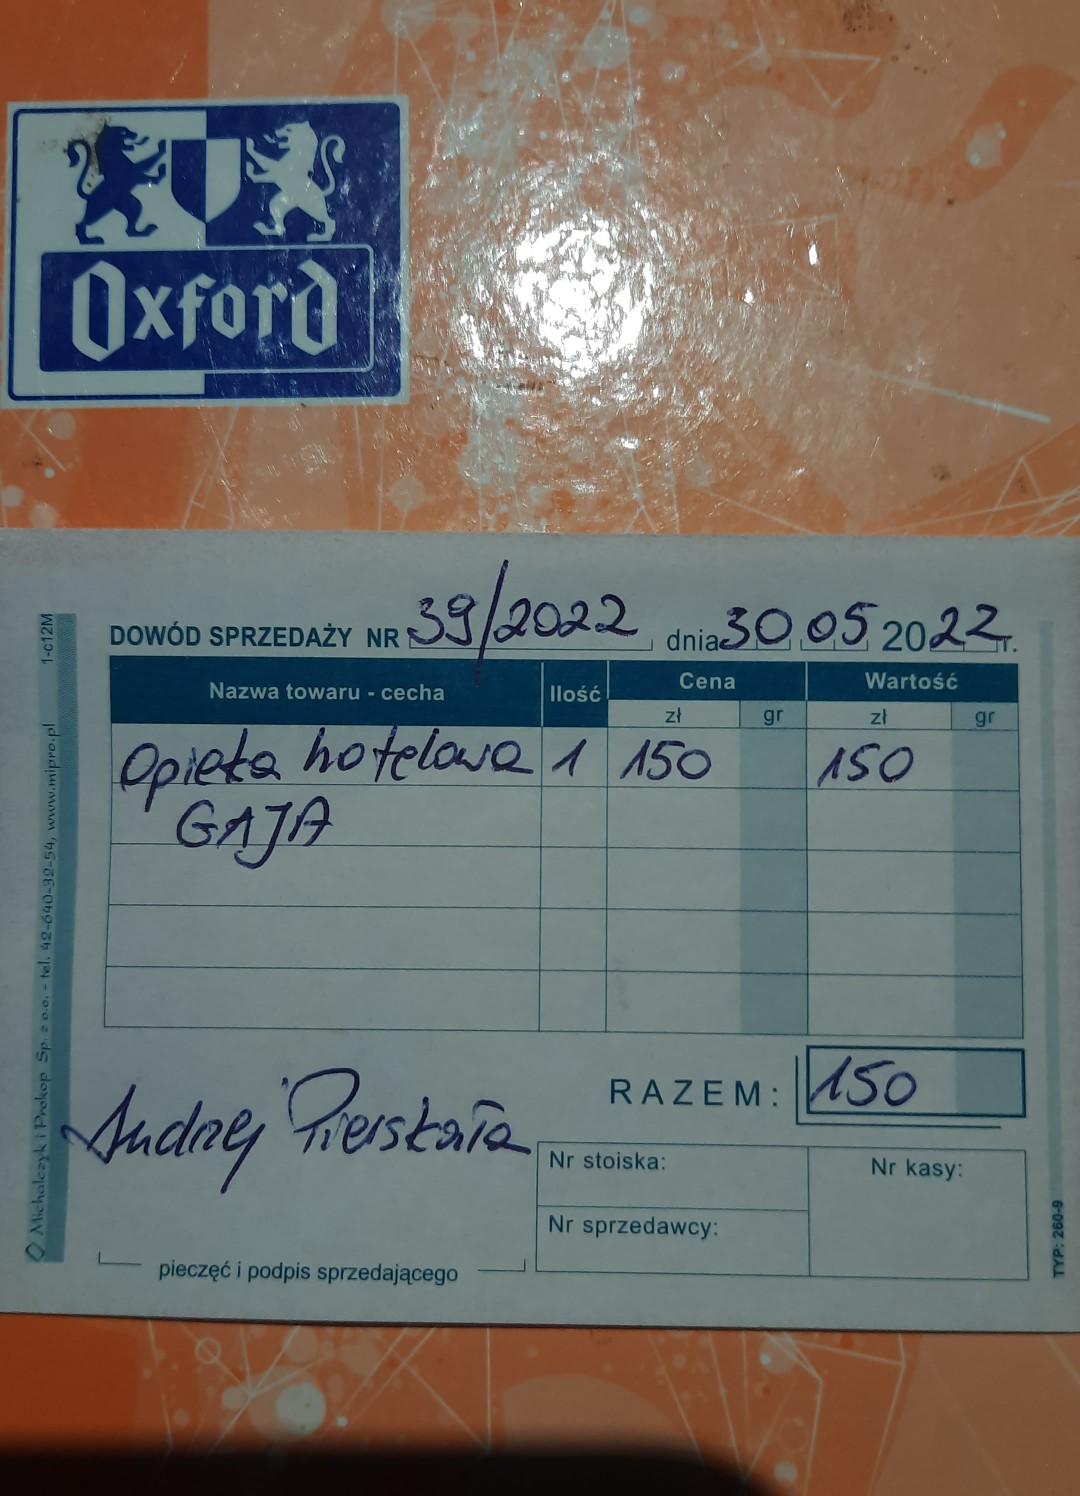 Oxford
DOWÓD SPRZEDAŻY NR 39/2022 dnia 30 05 2022 r.
Nazwa towaru - cecha Ilość Cena Wartość
zł gr zł gr
Opieka hotelowa 1 150 150
GAJA
RAZEM: 150
Andrzej Pierskała
Nr stoiska: Nr kasy:
Nr sprzedawcy:
pieczęć i podpis sprzedającego
Michalczyk i Prokop Sp. z o.o. - tel. 42-640-32-54, www.mipro.pl 1-c12M
TYP: 260-9